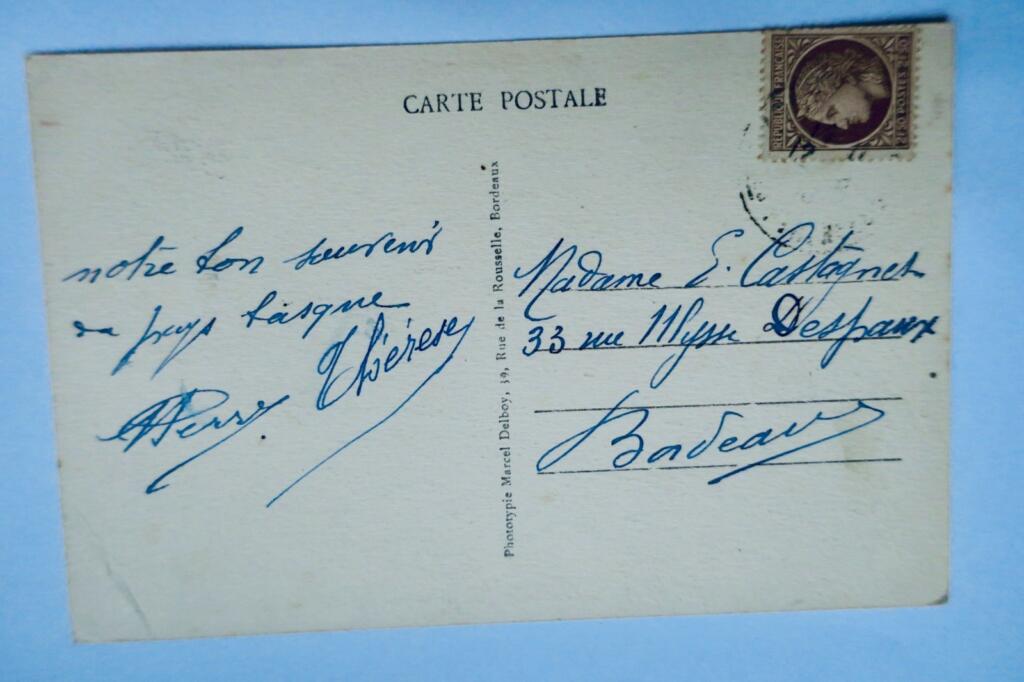 CARTE POSTALE
RÉPUBLIQUE FRANÇAISE
POSTES
notre bon souvenir
du pays basque
Thérèse
Madame E. Castagnet
33 rue Ulysse Despaux
Bordeaux
Phototypie Marcel Delboy, 39, Rue de la Rousselle, Bordeaux